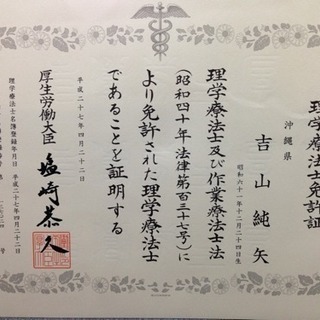 理学療法士免許証
沖縄県
吉山純矢
昭和六十一年十二月二十四日生
理学療法士及び作業療法士法
(昭和四十年法律第百三十七号)に
より免許された理学療法士
であることを証明する
平成二十七年四月二十二日
厚生労働大臣 塩崎恭久
理学療法士名簿登録年月日 平成二十七年四月二十二日